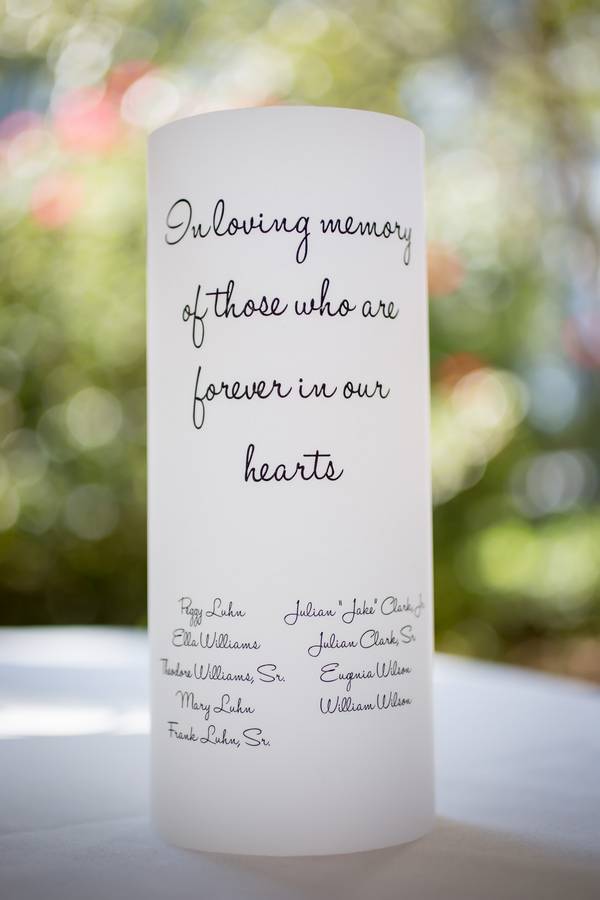 In loving memory
of those who are
forever in our
hearts
Peggy Luhn
Ella Williams
Theodore Williams, Sr.
Mary Luhn
Frank Luhn, Sr.
Julian "Jake" Clark, Jr.
Julian Clark, Sr.
Eugenia Wilson
William Wilson